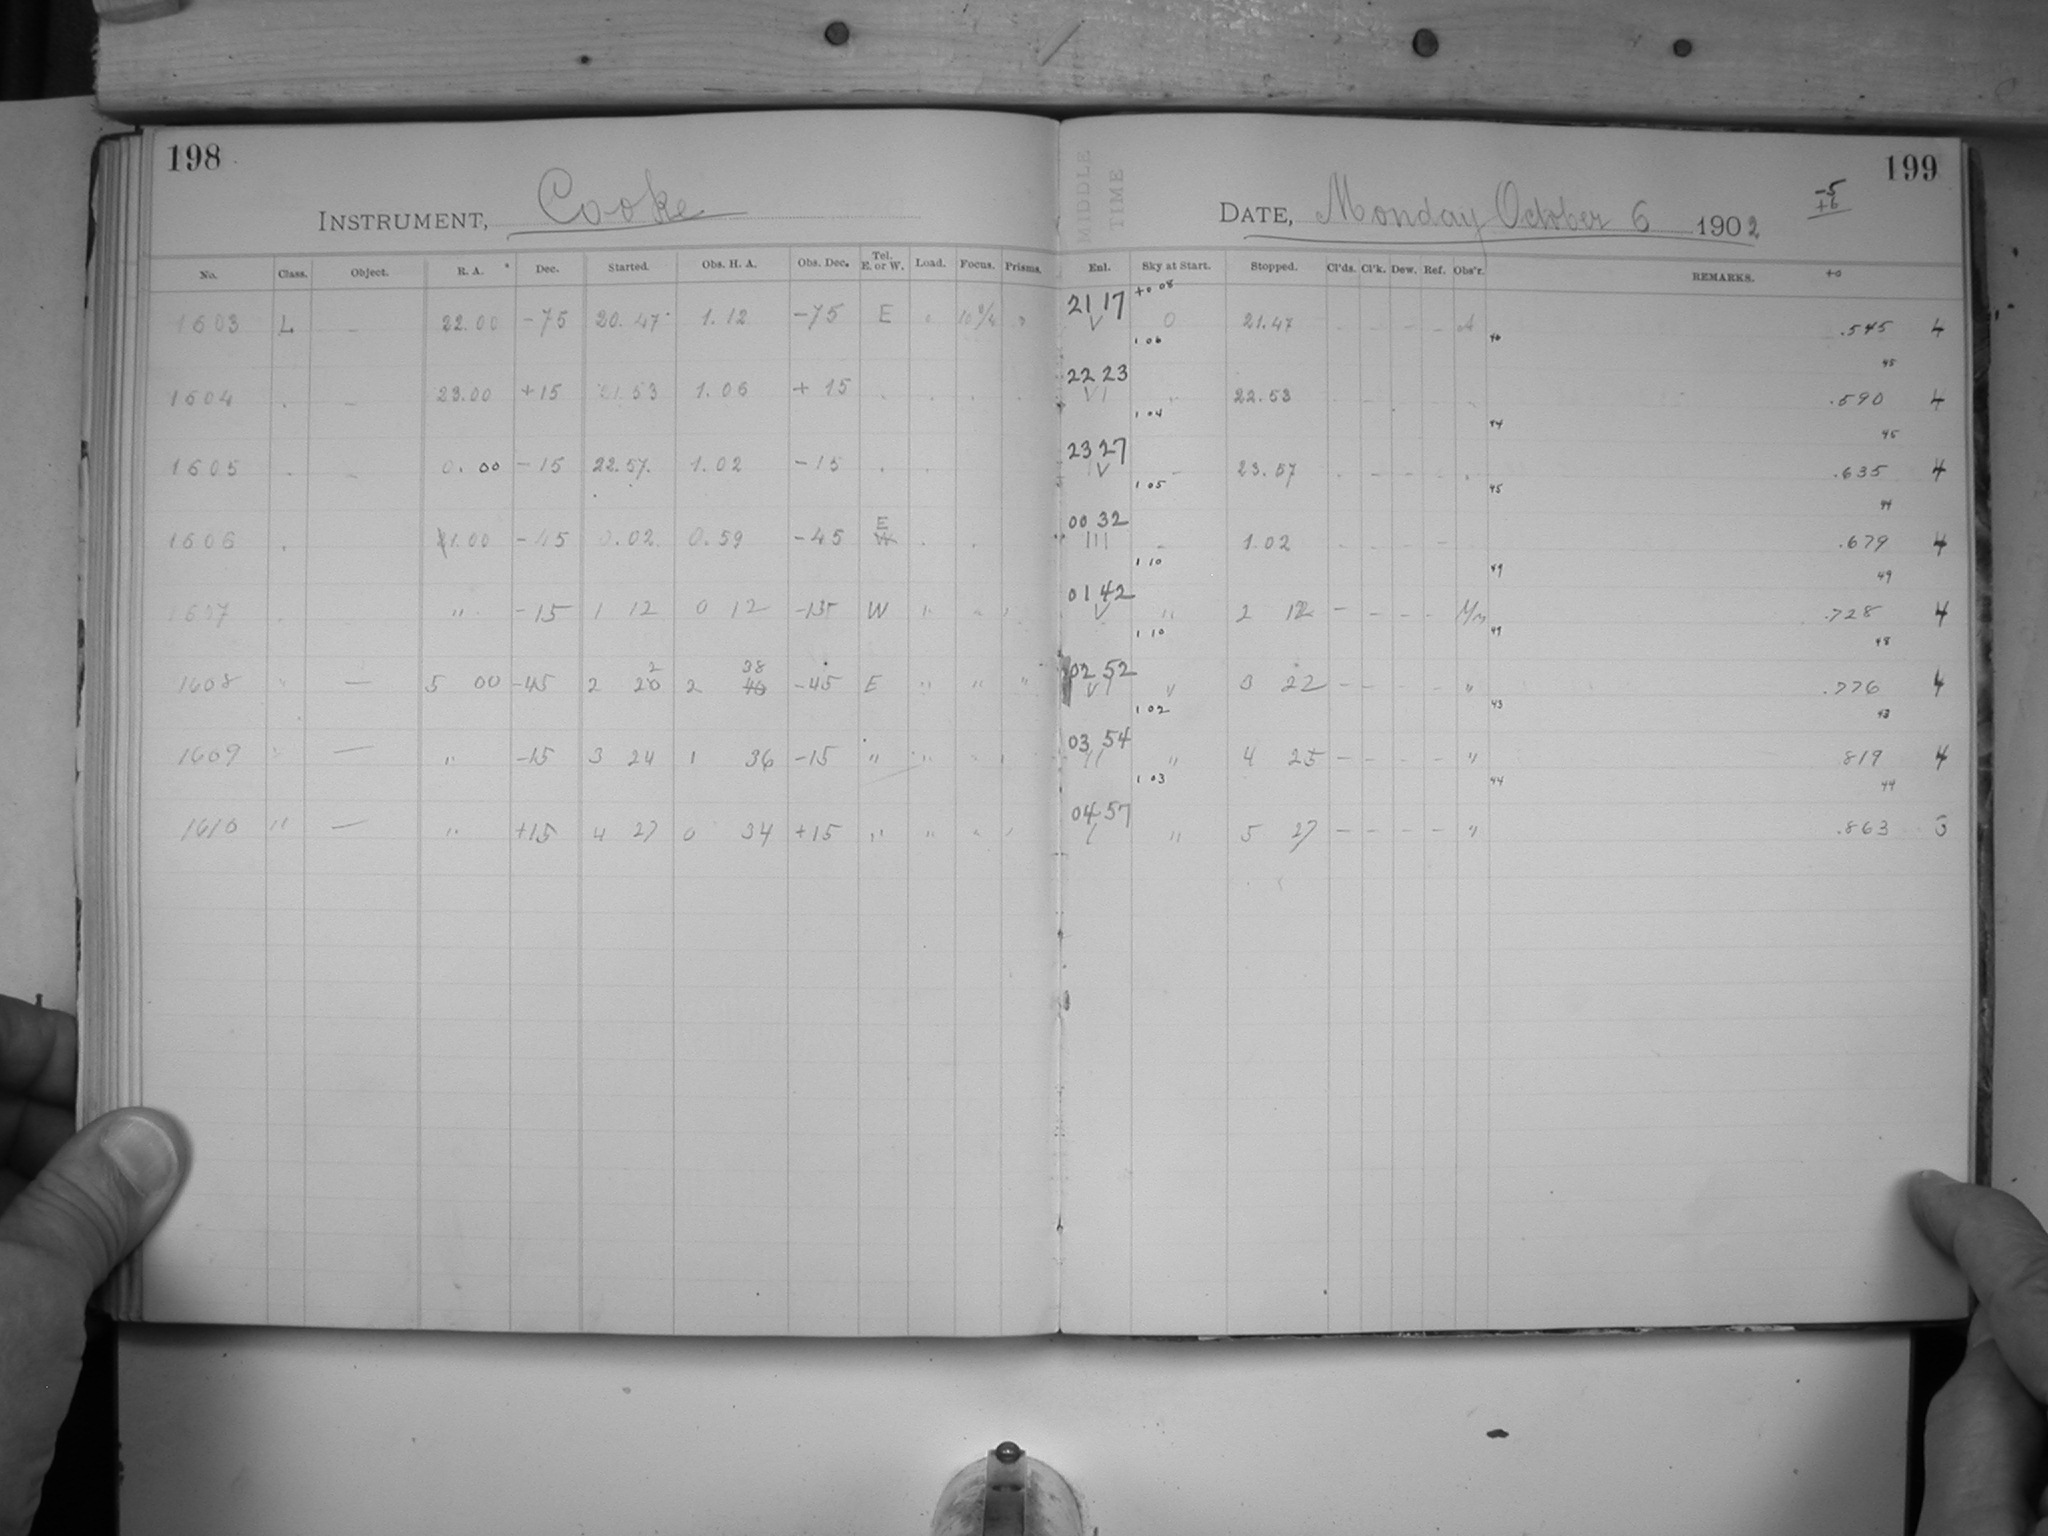 198
INSTRUMENT, Cooke
No. Class. Object. R. A. Dec. Started. Obs. H. A. Obs. Dec. Tel. E. or W. Load. Focus. Prisms.
1603 L — 22.00 -75 20.47 1.12 -75 E
1604 — 23.00 +15 21.53 1.06 +15
1605 — 0.00 -15 22.57 1.02 -15
1606 1.00 -45 0.02 0.59 -45 E W
1607 " -15 1 12 0 12 -15 W
1608 " — 5 00 -45 2 20 2 2 40 38 -45 E " " "
1609 " — " -15 3 24 1 36 -15 " " "
1610 " — " +15 4 27 0 34 +15 " " "
199
MIDDLE TIME
DATE, Monday October 6 1902
-5
+6
Enl. Sky at Start. Stopped. Cl'ds. Cl'k. Dew. Ref. Obs'r. REMARKS.
+0
21 17 +0 08
V 0 21.47 - - - - A .545 4
1 06 46 45
22 23
VI " 22.53 .590 4
1 04 44 45
23 27
V - 23.57 - - - - .635 4
1 05 45 44
00 32
III - 1.02 - - - - .679 4
1 10 49 49
01 42
V " 2 12 - - - - .728 4
1 10 49 48
02 52
VI " 3 22 - - - - " .776 4
1 02 43 43
03 54
II " 4 25 - - - - " 819 4
1 03 44 44
04 57
I " 5 27 - - - - " .863 5